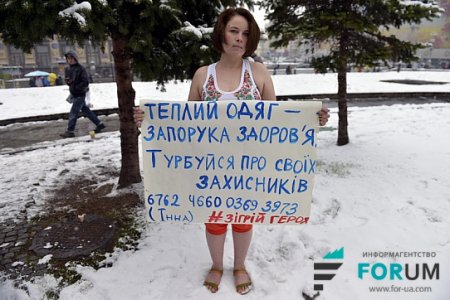 ТЕПЛИЙ ОДЯГ –
ЗАПОРУКА ЗДОРОВ'Я
ТУРБУЙСЯ ПРО СВОЇХ
ЗАХИСНИКІВ
6762 4660 0369 3973
(Інна) #ЗІГРІЙ ГЕРОЯ
ИНФОРМАГЕНТСТВО
FORUM
www.for-ua.com